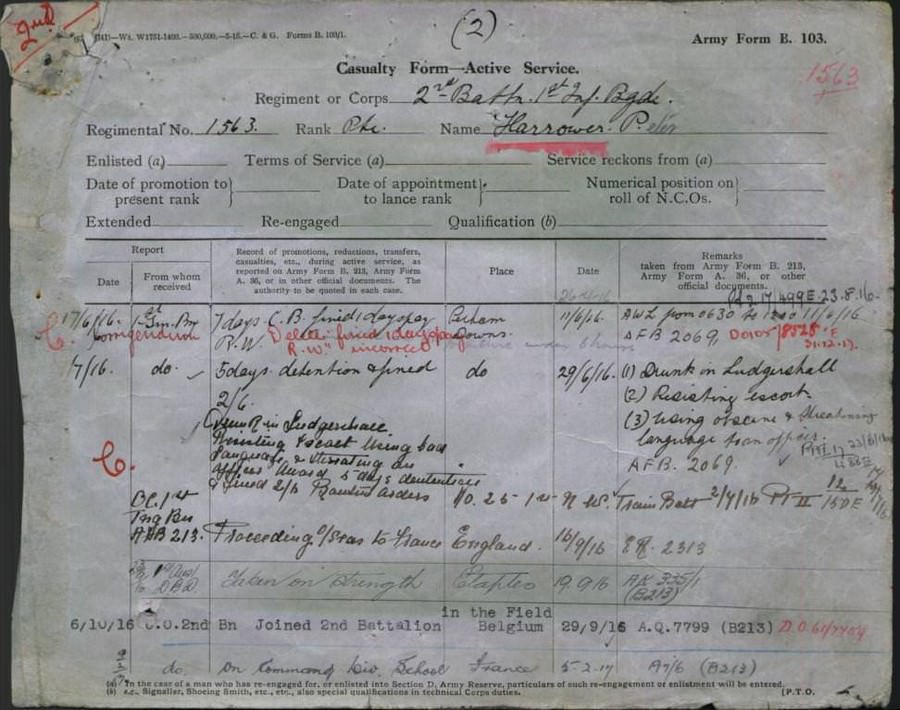 2nd
(2)
Forms B. 103/1.
Army Form B. 103.
1563
Casualty Form—Active Service.
Regiment or Corps 2nd Battn. 1st Inf. Bgde.
Regimental No. 1563. Rank Pte. Name Harrower. Peter
Enlisted (a) Terms of Service (a) Service reckons from (a)
Date of promotion to present rank} Date of appointment to lance rank} Numerical position on roll of N.C.Os.}
Extended Re-engaged Qualification (b)
Report
Date
From whom received
Record of promotions, reductions, transfers, casualties, etc., during active service, as reported on Army Form B. 213, Army Form A. 36, or in other official documents. The authority to be quoted in each case.
Place
Date
Remarks
taken from Army Form B. 213, Army Form A. 36, or other official documents.
23.8.16
17/6/16. 1st Trn. Bn 7 days C.B. fined 1 days pay Perham Downs. 11/6/16. AWL from 0630 to 11/6/16
C. Corrigendum R.W. Delete "fined 1 days pay R.W." incorrect AFB 2069,
31.12.17.
7/16. do. 5 days detention & fined 2/6. do 29/6/16. (1) Drunk in Ludgershall
(2) Resisting escort.
(3) using obscene & threatening language to an officer.
AFB. 2069.
Drunk in Ludgershall
Resisting Escort Using bad
language & threating an
officer Award 5 days detention
& fined 2/6
C.
OC. 1st Trg Bn AFB 213. Proceeding O/Seas to France England. 16/9/16 2313
1st Aust DBD Taken on Strength Etaples 19.9.16 AK 335/1 (B213)
6/10/16 C.O.2nd Bn Joined 2nd Battalion in the Field Belgium 29/9/16 A.Q.7799 (B213)
do. On Command Div. School France 5-2-17 (B213)
(a) In the case of a man who has re-engaged for, or enlisted into Section D, Army Reserve, particulars of such re-engagement or enlistment will be entered.
(b) e.g., Signaller, Shoeing Smith, etc., etc., also special qualifications in technical Corps duties.
[P.T.O.